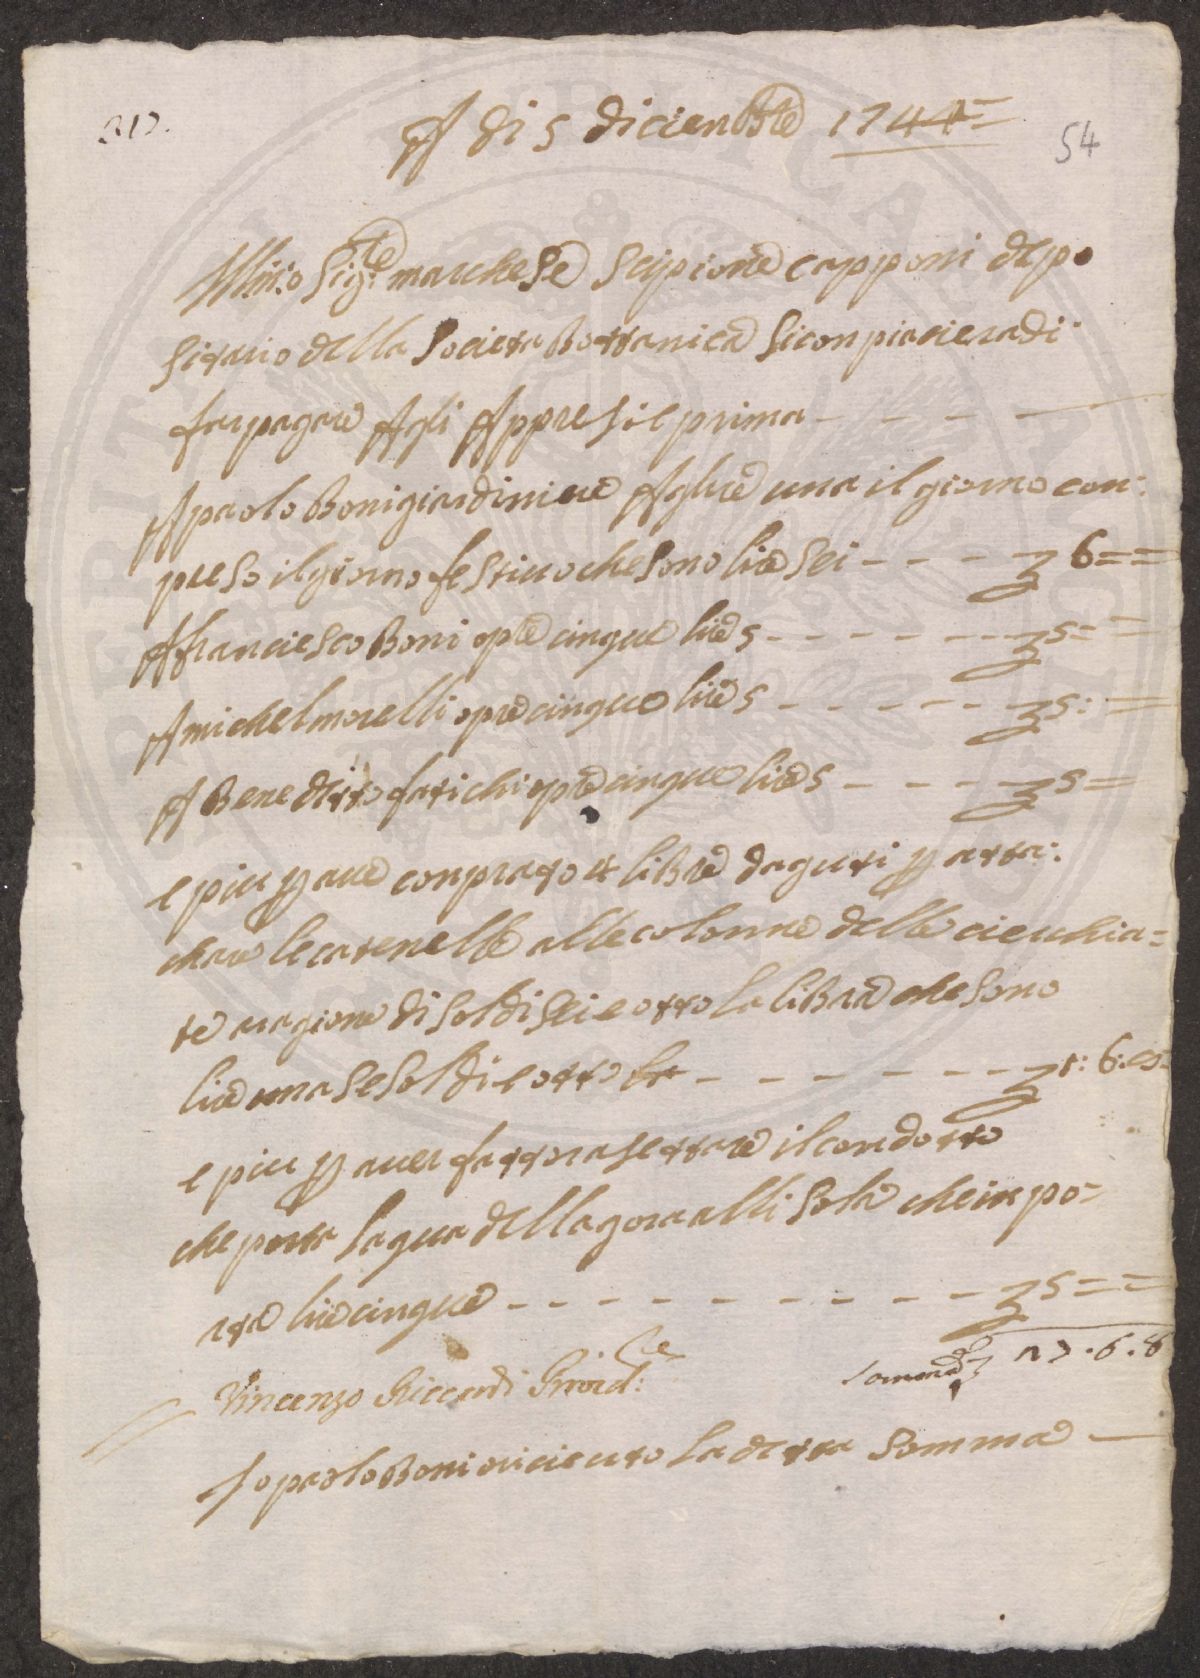 217.
A di 5 diciembre 1744=
54
Illmo Sigre marchese Scipione capponi depo
sitario della Societa Bottanica Si conpiaciera di
far pagare Agli Appresi e prima - - - -
A paolo Boni giardiniere A lire una il giorno con:
preso il giorno festiuo che sono lire sei - - - - 6==
A franciesco Boni opre cinque lire 5 - - - - - - 5==
A michel morelli opre cinque lire 5 - - - - - - 5:=
A Benedetto fatichi opre cinque lire 5 - - - - 5=
e piu p aue conprato 4 libre daguti p atta:
chare le catenelle alle colonne delle cierchia=
te a ragione di soldi sei e otto la libra che sono
lire una se soldi e otto - - - - - - - 1: 6: 8
e piu p auer fatto rasettare il condotto
che porta laqua della gora alli sole che inpo=
rta lire cinque - - - - - - - - - - - 5==
Somma 27.6.8
Vincenzo Riccardi
Io paolo Boni o riceuto La detta Somma